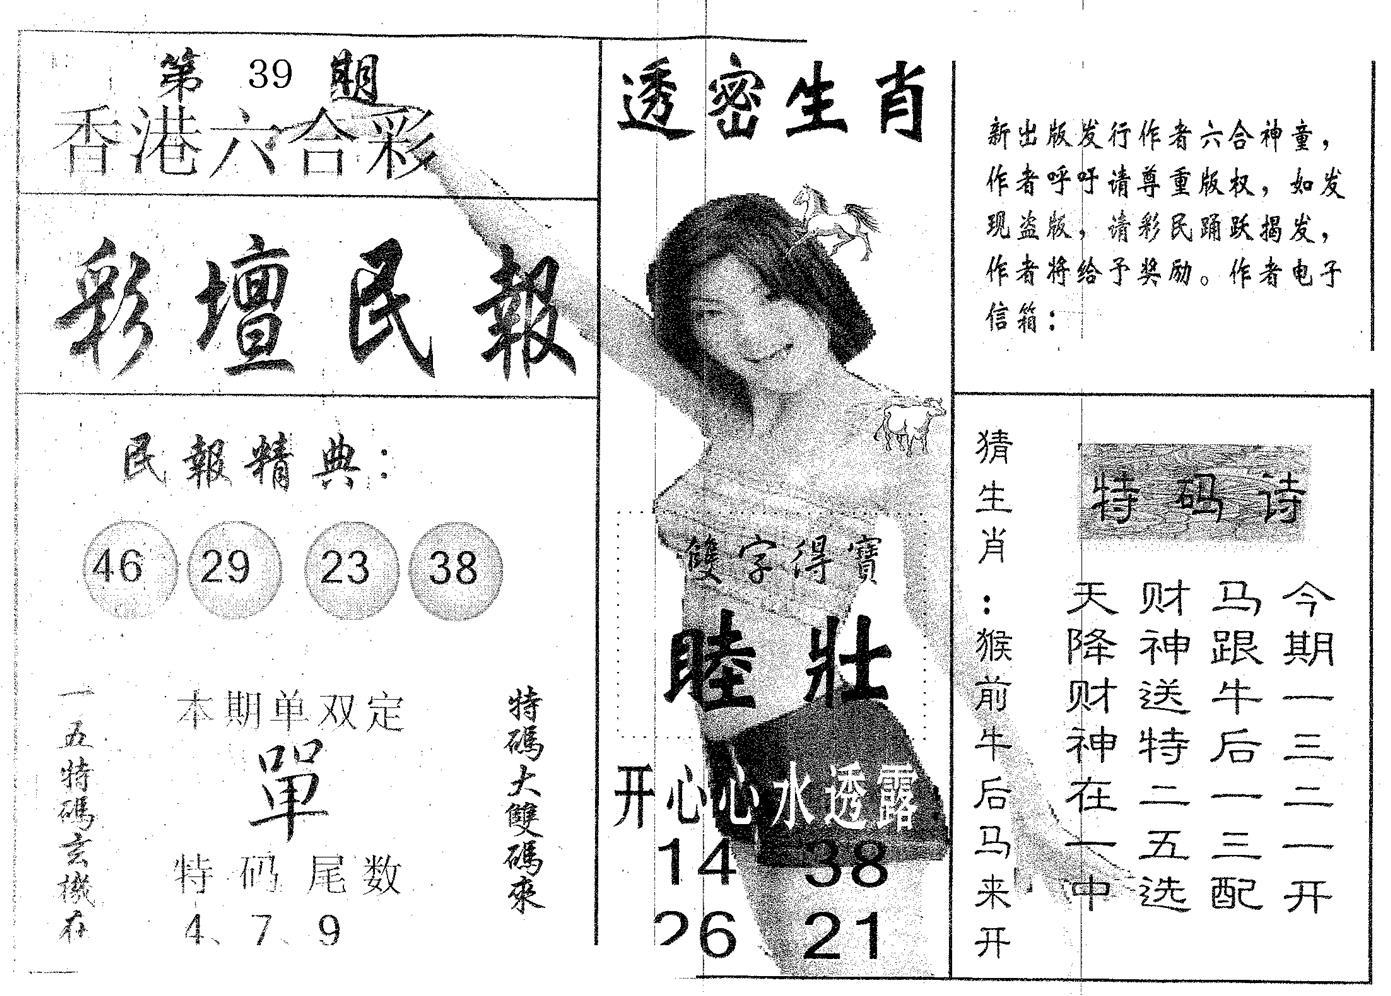 第 39 期
香港六合彩
彩壇民報
民報精典：
46 29 23 38
一五特碼玄機在
本期单双定
單
特码尾数
4、7、9
特碼大雙碼來
透密生肖
雙字得寶
睦壯
开心心水透露：
14 38
26 21
新出版发行作者六合神童，
作者呼吁请尊重版权，如发
现盗版，请彩民踊跃揭发，
作者将给予奖励。作者电子
信箱：
猜生肖：猴前牛后马来开
特码诗
今期一三二一开
马跟牛后一三配
财神送特二五选
天降财神在一中